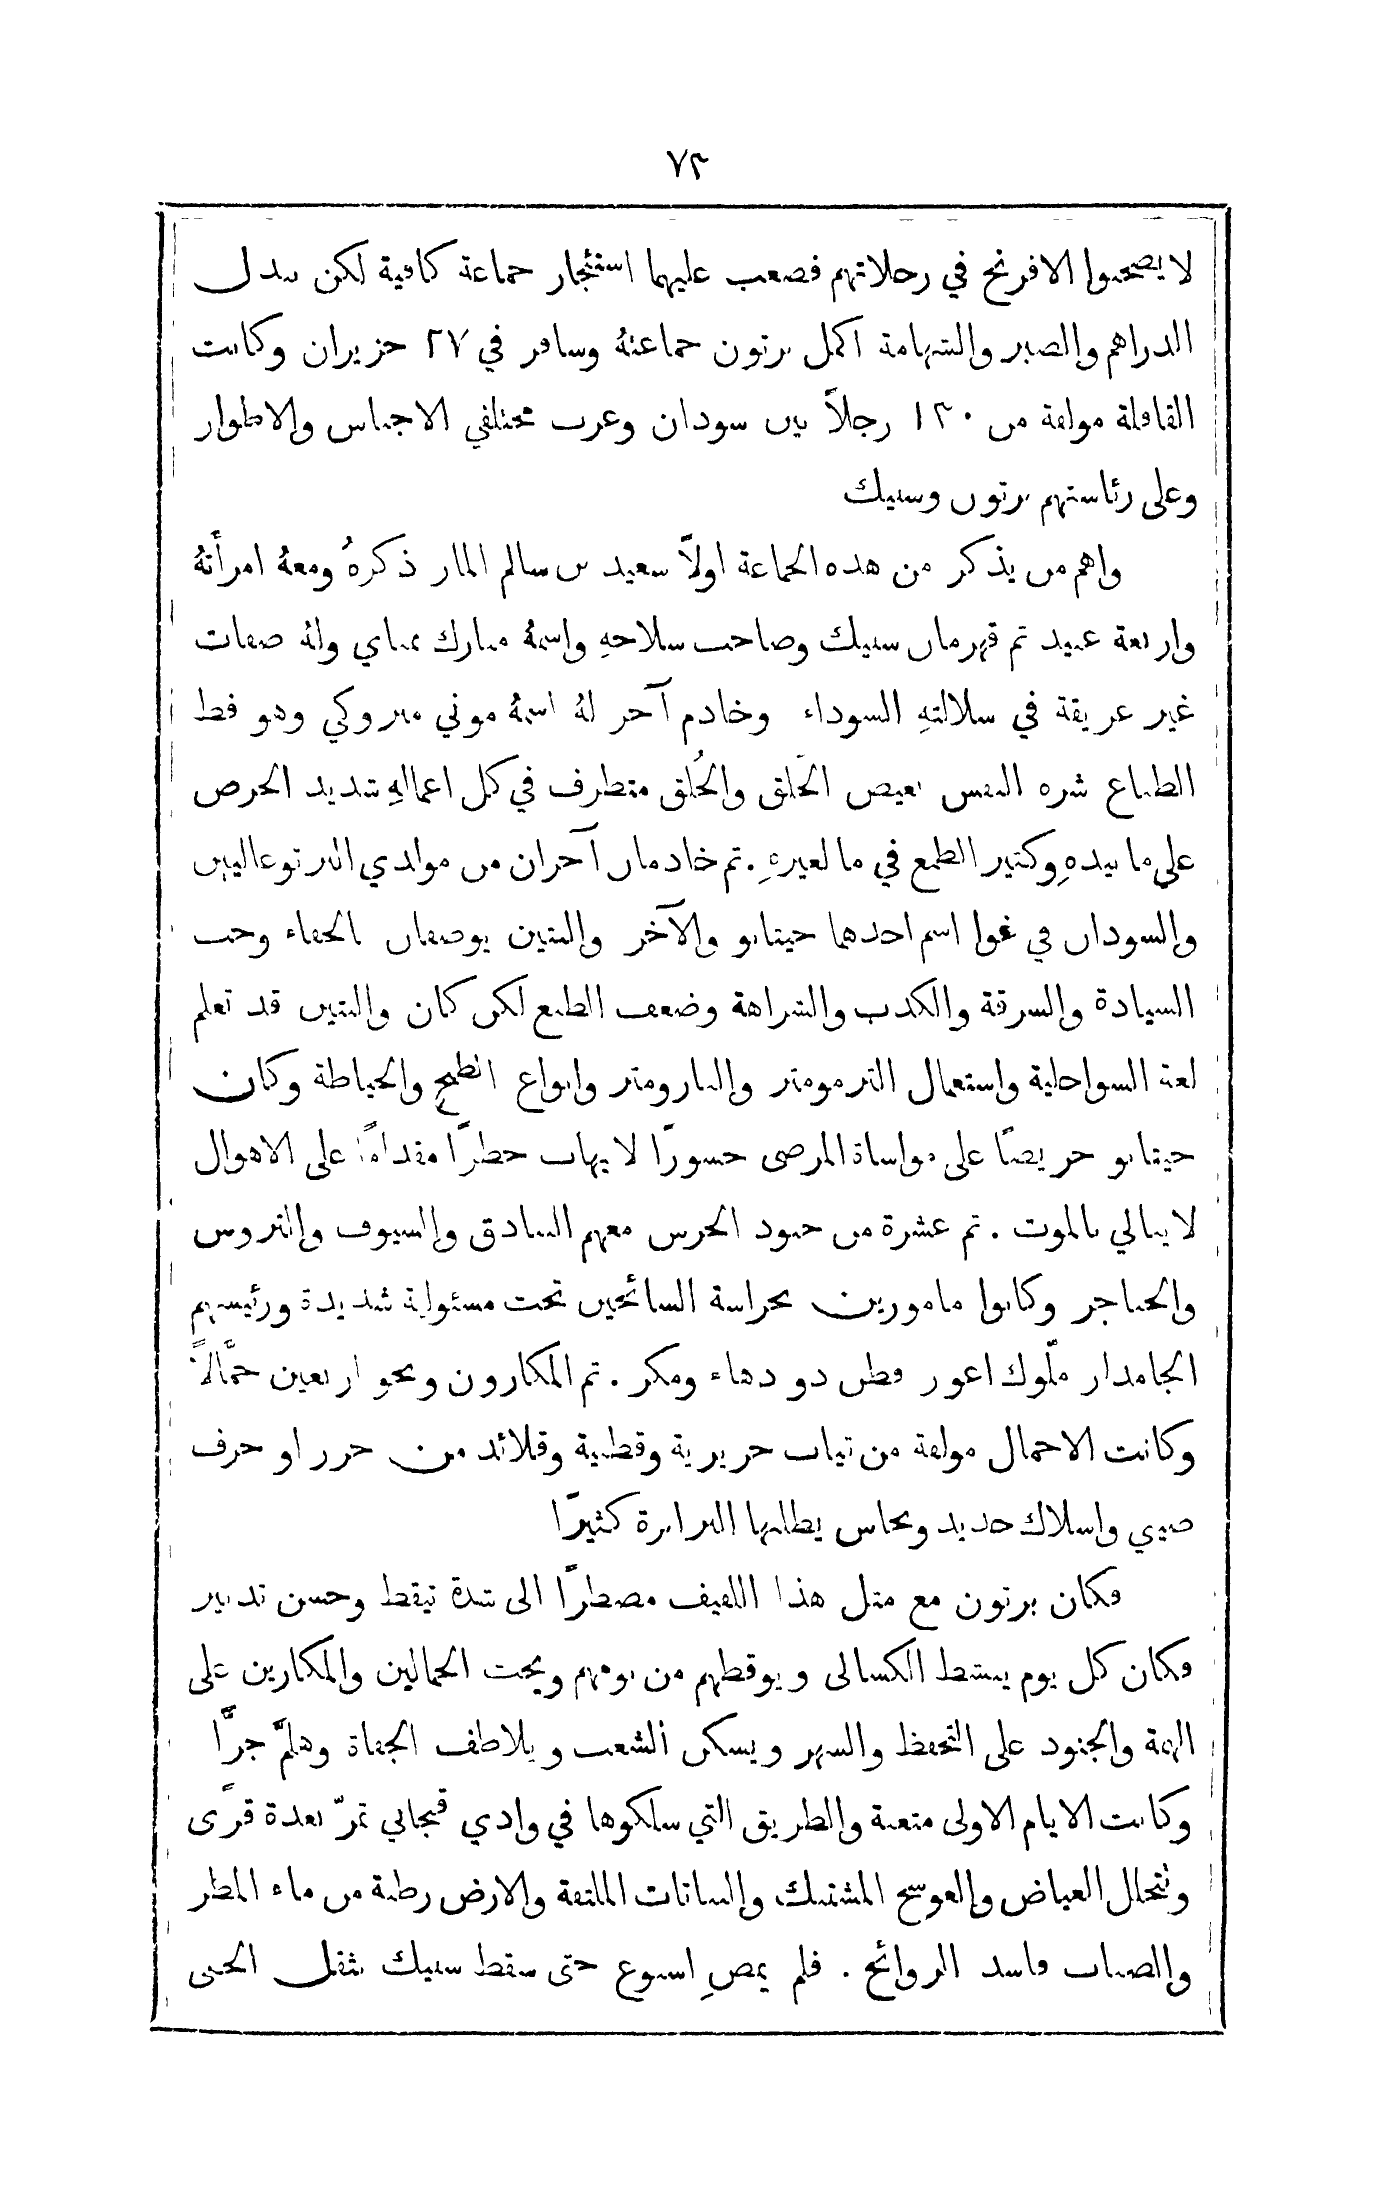 ٧٣
لا يصحبوا الافرنج في رحلاتهم فصعب عليهما استئجار جماعة كافية لكن ببذل
الدراهم والصبر والشهامة اكمل برتون جماعتهُ وسافر في ٢٧ حزيران وكانت
القافلة مولفة من ١٣٠ رجلاً بين سودان وعرب مختلفي الاجناس والاطوار
وعلى رئاستهم برتون وسبيك
واهم من يذكر من هذه الجماعة اولاً سعيد بن سالم المار ذكرهُ ومعهُ امرأتهُ
واربعة عبيد ثم قهرمان سبيك وصاحب سلاحهِ واسمهُ مبارك بمباي ولهُ صفات
غير عريقة في سلالتهِ السوداء وخادم آخر لهُ اسمهُ موني مبروكي وهو فظ
الطباع شره النفس بغيض الخَلق والخُلق متطرف في كل اعمالهِ شديد الحرص
على ما بيدهِ وكثير الطمع في ما لغيرهِ . ثم خادمان آخران من موالدي البرتوغاليين
والسودان في غوا اسم احدهما جيتانو والآخر والنتين يوصفان بالجفاء وحب
السيادة والسرقة والكذب والشراهة وضعف الطبع لكن كان والنتين قد تعلم
لغة السواحلية واستعمال الترمومتر والبارومتر وانواع الطبخ والخياطة وكان
جيتانو حريصًا على مواساة المرضى جسورًا لا يهاب خطرًا مقدامًا على الاهوال
لا يبالي بالموت . ثم عشرة من جنود الحرس معهم البنادق والسيوف والتروس
والخناجر وكانوا مامورين بحراسة السائحين تحت مسئولية شديدة ورئيسهم
الجامدار ملّوك اعور فطن ذو دهاء ومكر . ثم المكارون ونحو اربعين حمَّالاً
وكانت الاحمال مولفة من ثياب حريرية وقطنية وقلائد من خرز او خزف
صيني واسلاك حديد ونحاس يطلبها البرابرة كثيرًا
فكان برتون مع مثل هذا اللفيف مضطرًّا الى شدة تيقظ وحسن تدبير
فكان كل يوم ينشط الكسالى ويوقظهم من نومهم ويحث الحمالين والمكارين على
الهمة والجنود على التحفظ والسهر ويسكن الشغب ويلاطف الجفاة وهلمَّ جرًّا
وكانت الايام الاولى متعبة والطريق التي سلكوها في وادي قنجاني تمرّ بعدة قرًى
وتتخلل الغياض والعوسج المشتبك والنباتات الملتفة والارض رطبة من ماء المطر
والضباب فاسد الروائح . فلم يمضِ اسبوع حتى سقط سبيك بثقل الحمى